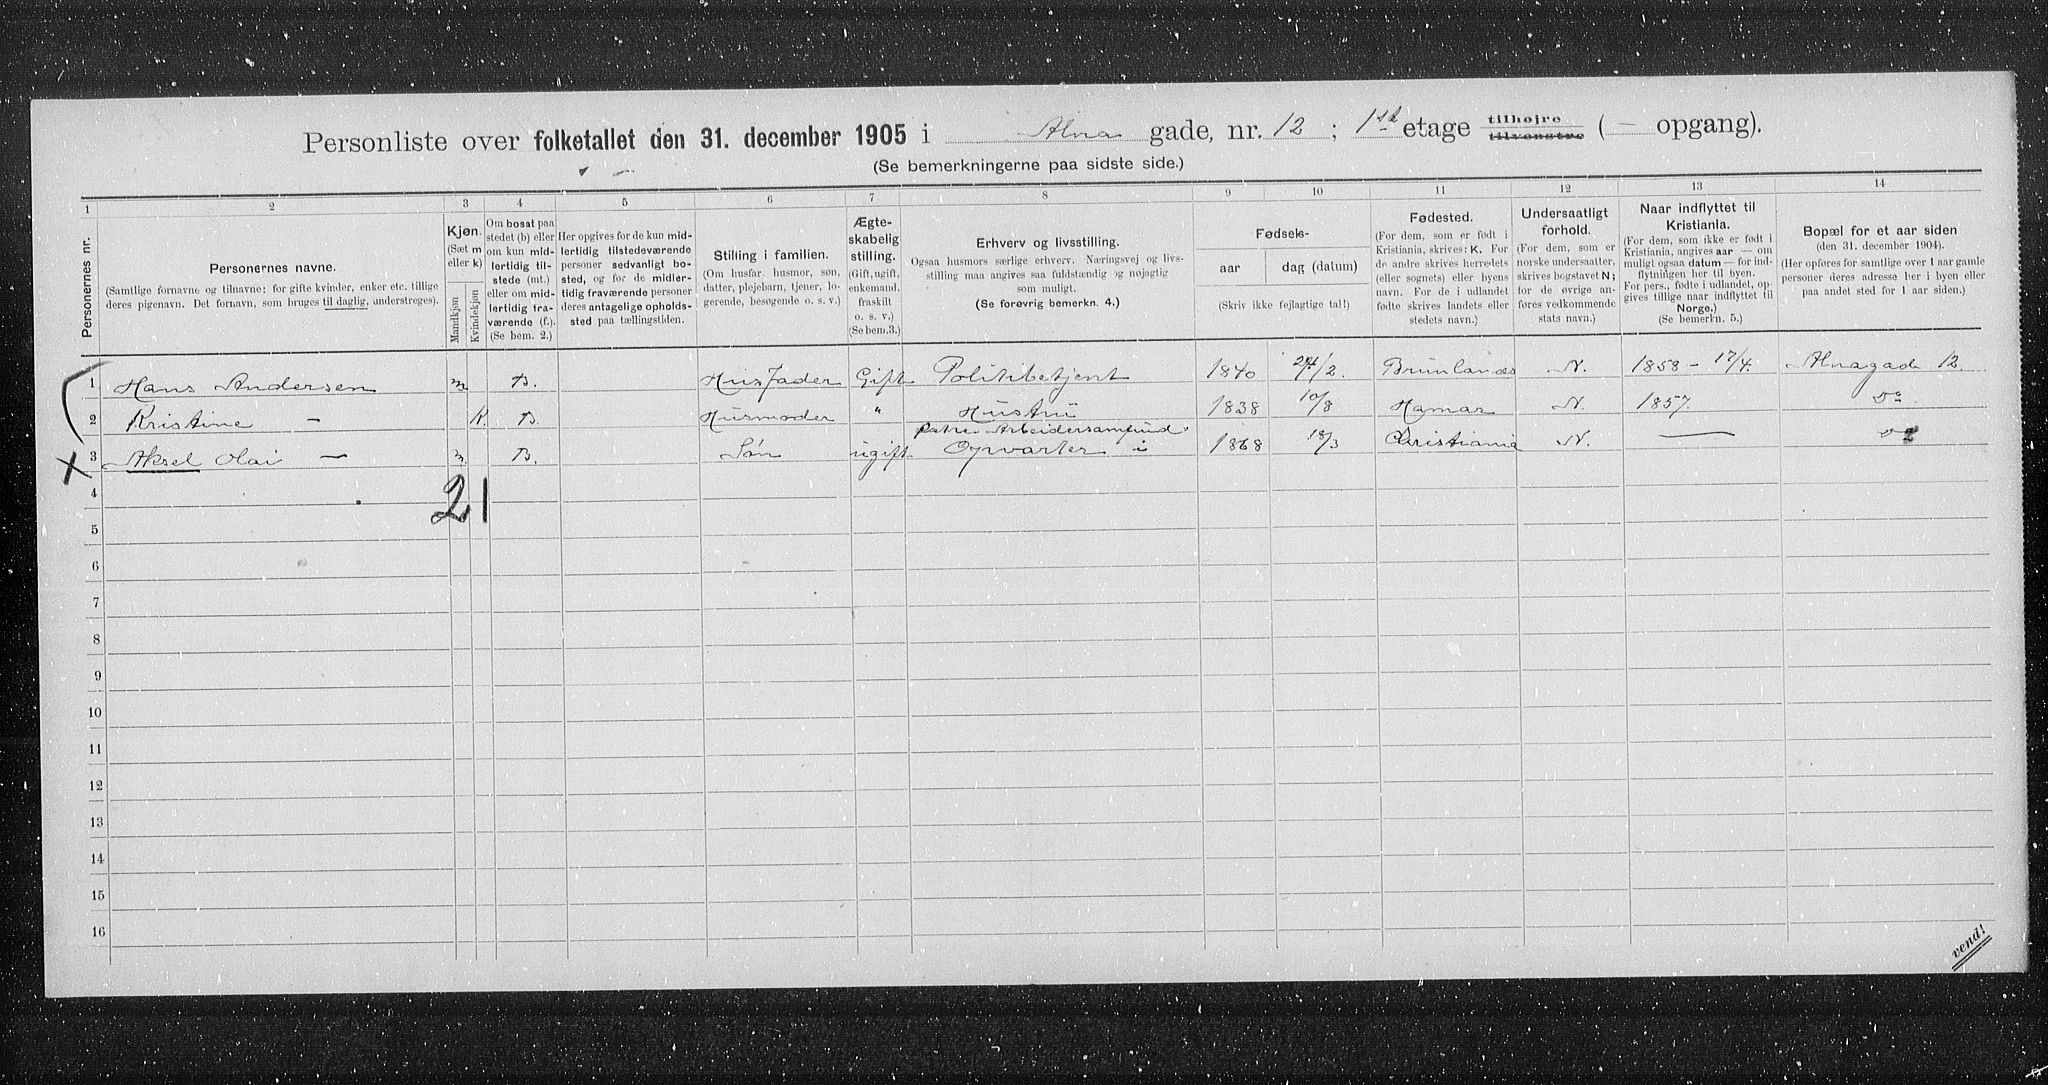 Personliste over folketallet den 31. december 1905 i Alna gade, nr. 12; 1ste etage tilhøjre tilvenstre ( — opgang).
(Se bemerkningerne paa sidste side.)
1 2 3 4 5 6 7 8 9 10 11 12 13 14
Personernes nr.
Personernes navne.
(Samtlige fornavne og tilnavne; for gifte kvinder, enker etc. tillige
deres pigenavn. Det fornavn, som bruges til daglig, understreges).
Kjøn.
(Sæt m
eller k)
Mandkjøn
Kvindekjøn
Om bosat paa
stedet (b) eller
om kun mid-
lertidig til-
stede (mt.)
eller om mid-
lertidig fra-
værende (f.).
(Se bem. 2.)
Her opgives for de kun mid-
lertidig tilstedeværende
personer sedvanligt bo-
sted, og for de midler-
tidig fraværende personer
deres antagelige opholds-
sted paa tællingstiden.
Stilling i familien.
(Om husfar, husmor, søn,
datter, plejebarn, tjener, lo-
gerende, besøgende o. s. v.)
Ægte-
skabelig
stilling.
(Gift, ugift,
enkemand,
fraskilt
o. s. v.)
(Se bem. 3.)
Erhverv og livsstilling.
Ogsaa husmors særlige erhverv. Næringsvej og livs-
stilling maa angives saa fuldstændig og nøjagtig
som muligt.
(Se forøvrig bemerkn. 4.)
Fødsels-
aar
dag (datum)
(Skriv ikke fejlagtige tal!)
Fødested.
(For dem, som er født i
Kristiania, skrives: K. For
de andre skrives herredets
(eller sognets) eller byens
navn. For de i udlandet
fødte skrives landets eller
stedets navn.)
Undersaatligt
forhold.
(For dem, som er
norske undersaatter,
skrives bogstavet N;
for de øvrige an-
føres vedkommende
stats navn.)
Naar indflyttet til
Kristiania.
(For dem, som ikke er født i
Kristiania, angives aar — om
muligt ogsaa datum — for ind-
flytningen her til byen.
For pers., fødte i udlandet, op-
gives tillige naar indflyttet til
Norge.)
(Se bemerkn. 5.)
Bopæl for et aar siden
(den 31. december 1904).
(Her opføres for samtlige over 1 aar gamle
personer deres adresse her i byen eller
paa andet sted for 1 aar siden.)
1 Hans Andersen m B. Husfader Gift Politibetjent 1840 24/2. Brunlanæs N. 1858 - 17/4. Alnagade 12.
2 Kristine — K. B. Husmoder " Hustru 1838 10/8 Hamar N. 1857. Do
Arbeidersamfund
3 Aksel Olai — m. B. Søn ugift Opvarter i 1868 18/3 Christiania N. — Do
21
4
5
6
7
8
9
10
11
12
13
14
15
16
vend!